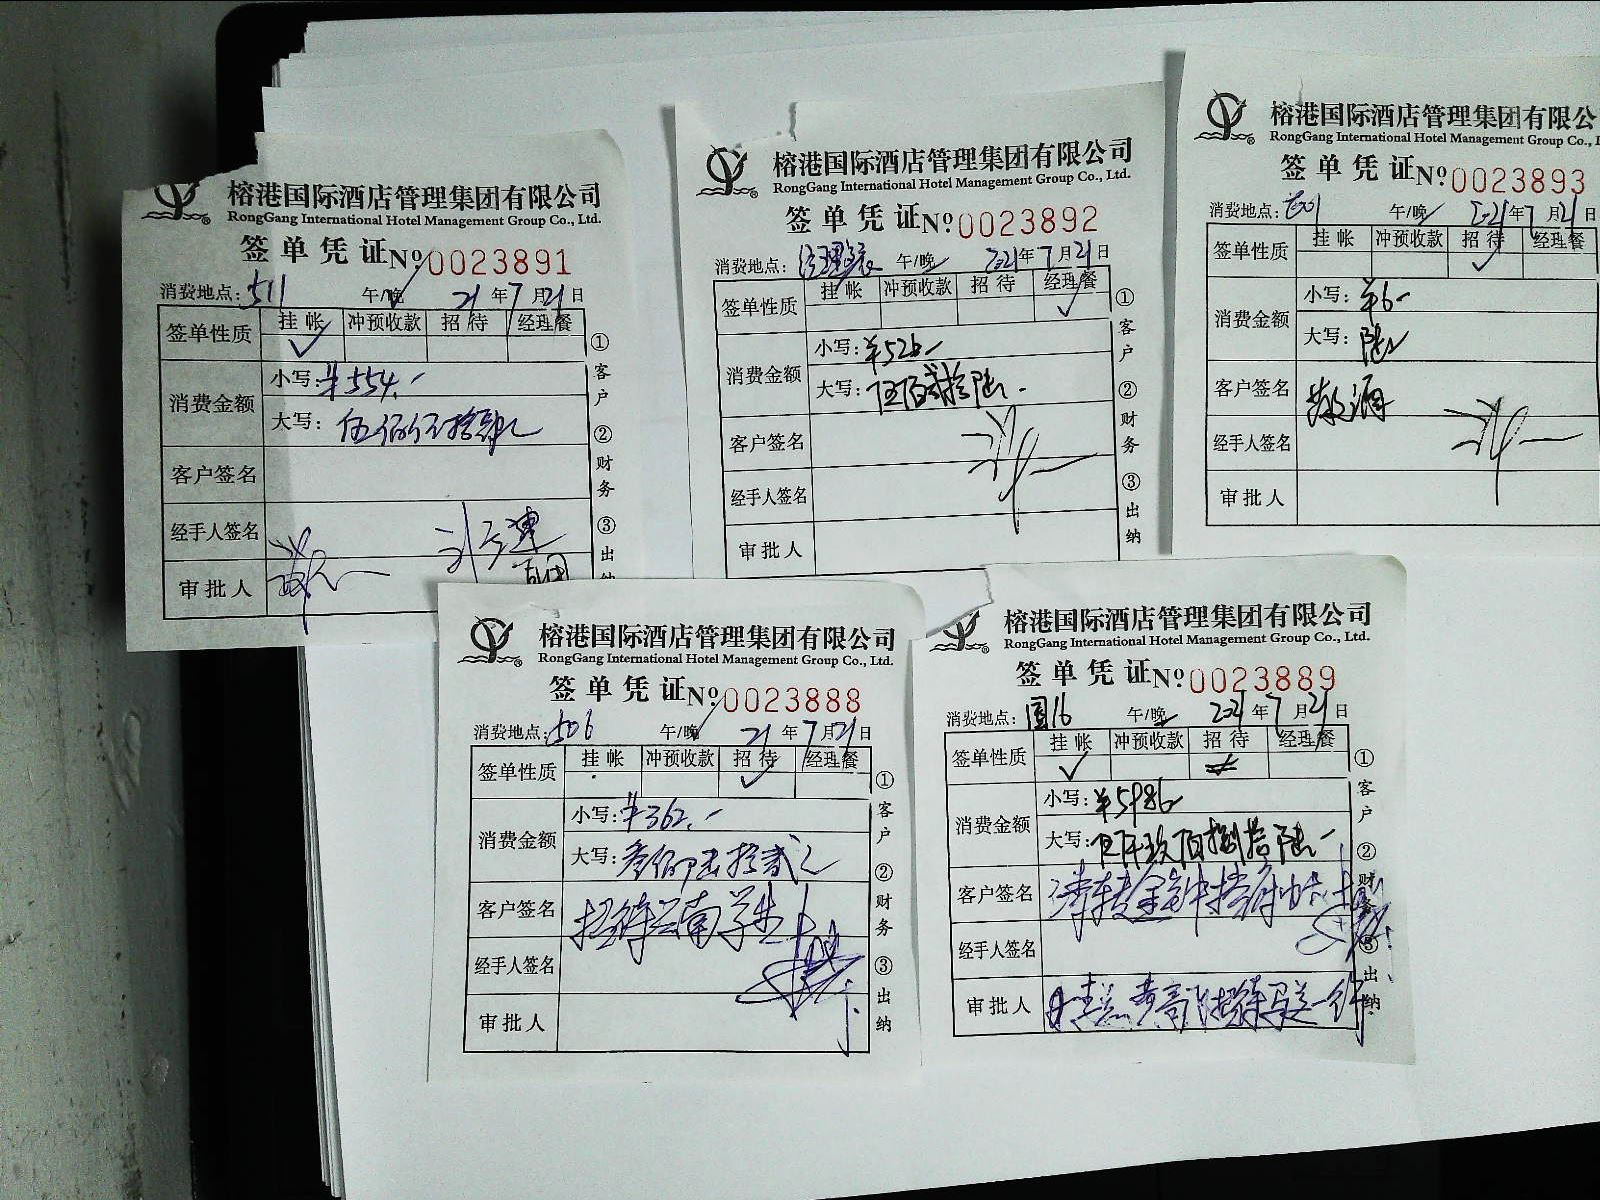 榕港国际酒店管理集团有限公司
RongGang International Hotel Management Group Co., Ltd.
签单凭证 No. 0023891
消费地点: 511 午/晚 21年7月21日
签单性质 挂帐 冲预收款 招待 经理餐
消费金额 小写: ¥554.-
大写: 伍佰伍拾肆元
客户签名
经手人签名
审批人
①客户 ②财务 ③出纳
榕港国际酒店管理集团有限公司
RongGang International Hotel Management Group Co., Ltd.
签单凭证 No. 0023892
消费地点: 经理餐 午/晚 2021年7月21日
签单性质 挂帐 冲预收款 招待 经理餐
消费金额 小写: ¥526.-
大写: 伍佰贰拾陆.-
客户签名
经手人签名
审批人
①客户 ②财务 ③出纳
榕港国际酒店管理集团有限公
RongGang International Hotel Management Group Co., L
签单凭证 No. 0023893
消费地点: 午/晚 2021年7月21日
签单性质 挂帐 冲预收款 招待 经理餐
消费金额 小写: ¥6.-
大写: 陆元
客户签名
经手人签名
审批人
榕港国际酒店管理集团有限公司
RongGang International Hotel Management Group Co., Ltd.
签单凭证 No. 0023888
消费地点: 506 午/晚 21年7月21日
签单性质 挂帐 冲预收款 招待 经理餐
消费金额 小写: ¥362.-
大写: 叁佰陆拾贰元
客户签名 招待云南学生
经手人签名
审批人
①客户 ②财务 ③出纳
榕港国际酒店管理集团有限公司
RongGang International Hotel Management Group Co., Ltd.
签单凭证 No. 0023889
消费地点: 国16 午/晚 2021年7月21日
签单性质 挂帐 冲预收款 招待 经理餐
消费金额 小写: ¥5986.-
大写: 伍仟玖佰捌拾陆.-
客户签名
经手人签名
审批人
①客户 ②财务 ③出纳